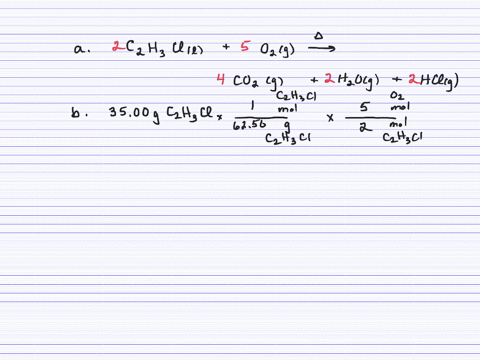 a. 2C₂H₃Cl(l) + 5 O₂(g) Δ→
4 CO₂(g) + 2H₂O(g) + 2HCl(g)
b. 35.00g C₂H₃Cl × 1 mol C₂H₃Cl / 62.50 g C₂H₃Cl × 5 mol O₂ / 2 mol C₂H₃Cl